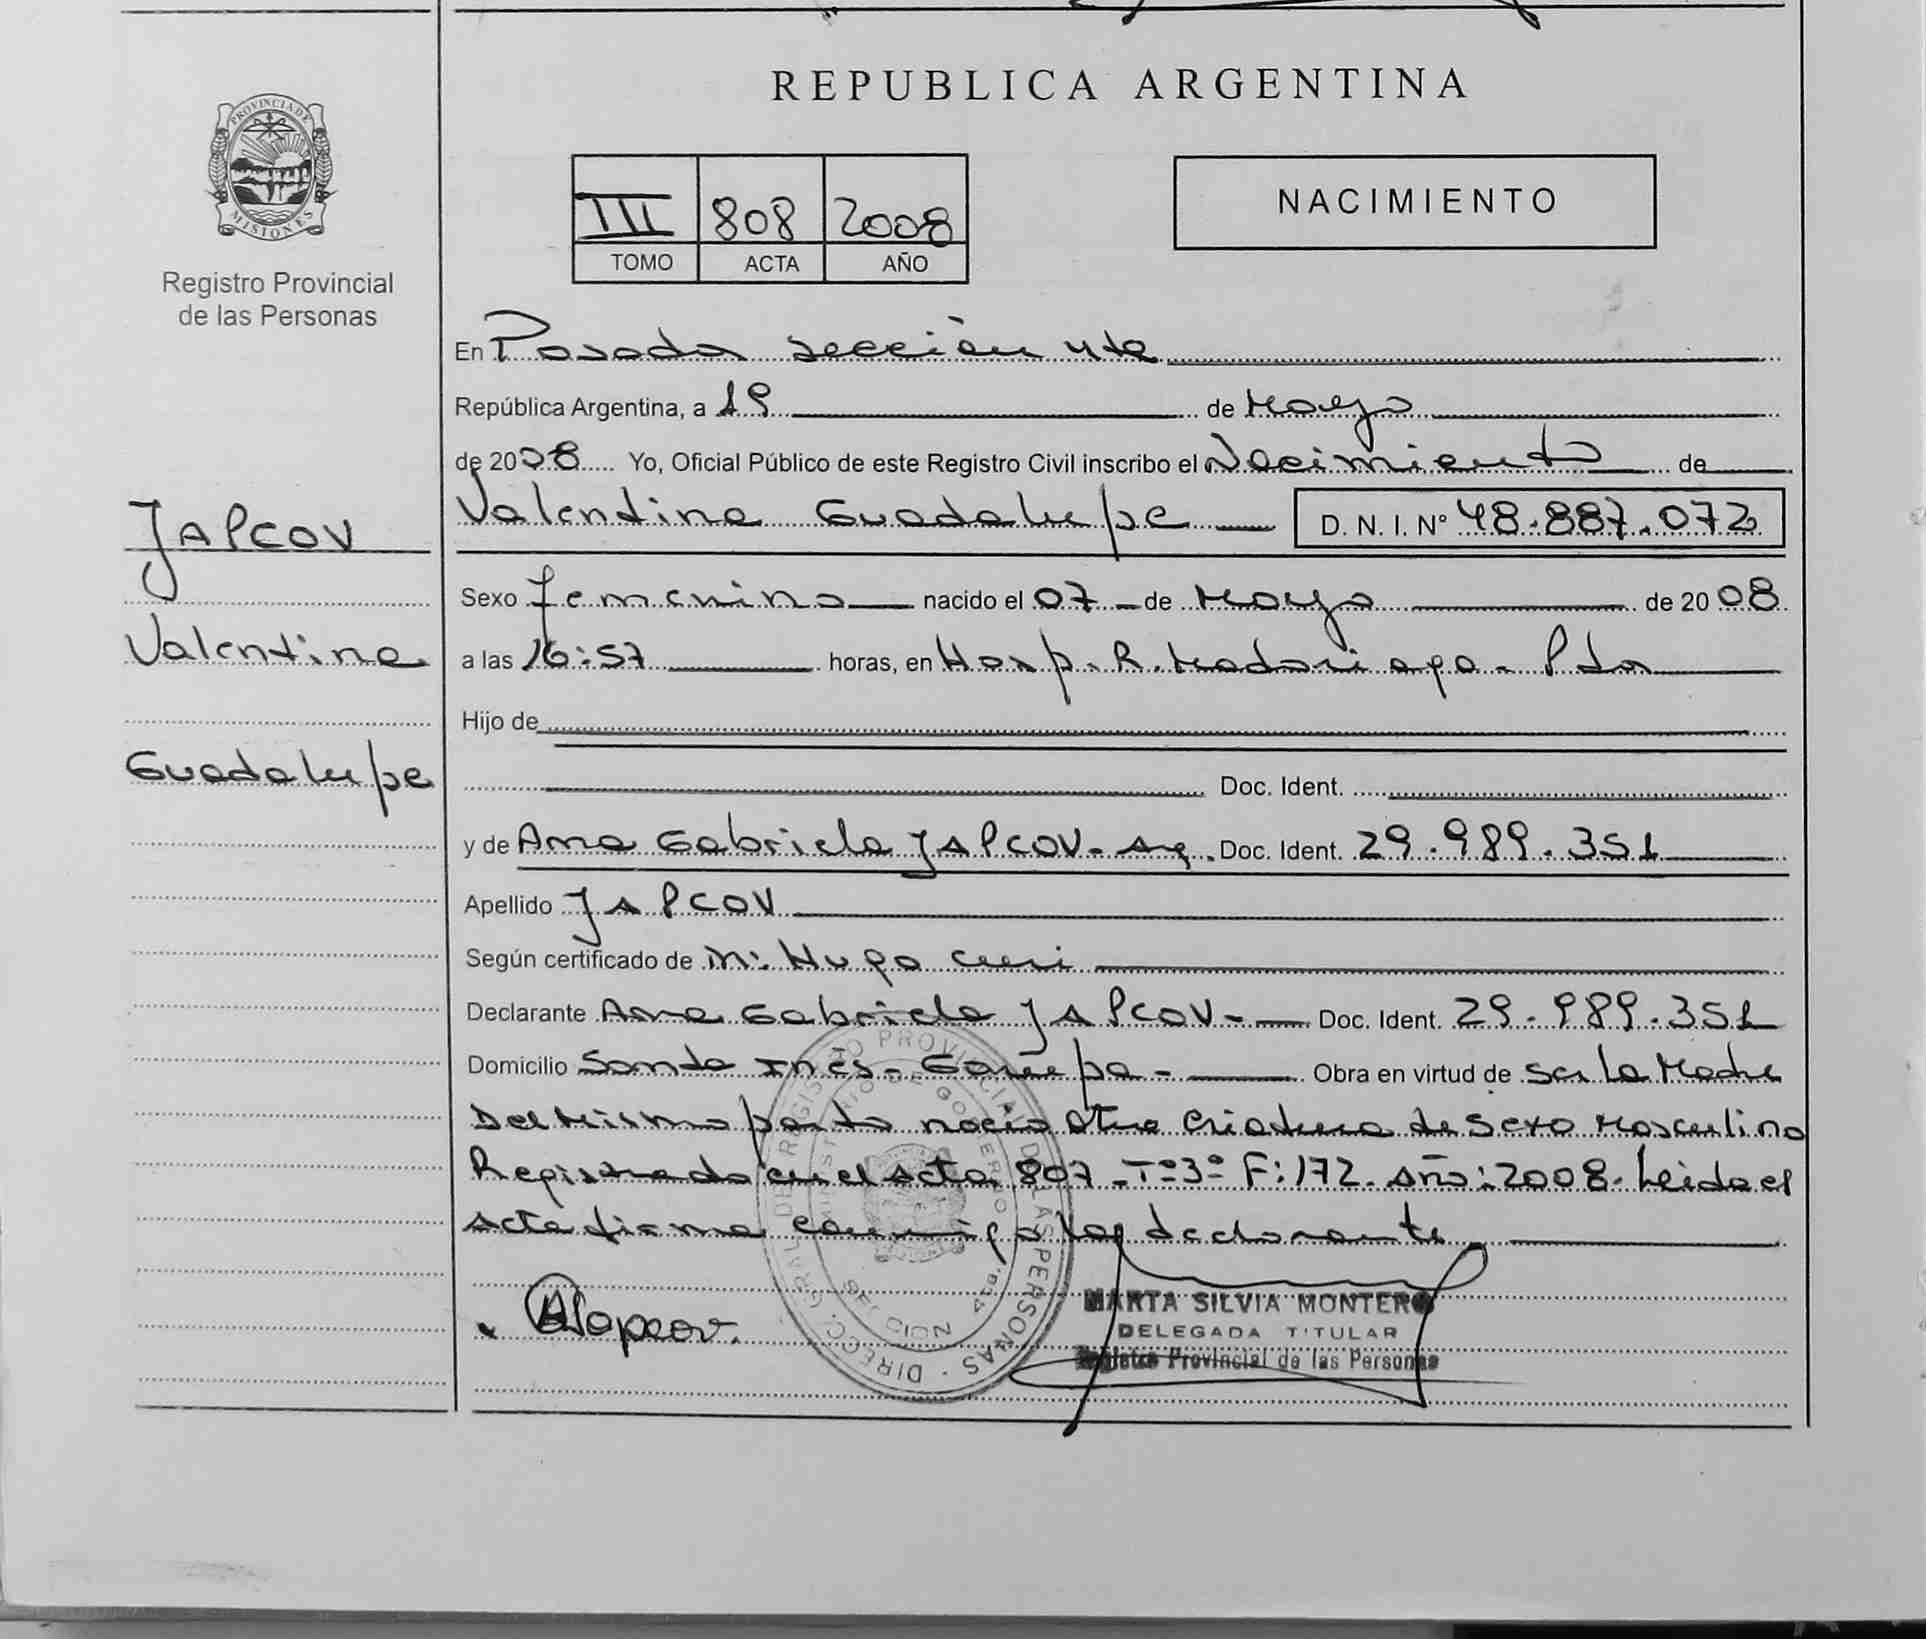 REPUBLICA ARGENTINA
PROVINCIA DE
MISIONES
Registro Provincial
de las Personas
III 808 2008
TOMO ACTA AÑO
NACIMIENTO
En Posadas sección 4ta
República Argentina, a 19 de Mayo
de 2008 Yo, Oficial Público de este Registro Civil inscribo el Nacimiento de
Valentina Guadalupe D. N. I. Nº 48.887.072
JAPCOV
Valentina
Guadalupe
Sexo femenino nacido el 07 de Mayo de 2008
a las 16:57 horas, en Hosp. R. Madariaga - Pdas
Hijo de
Doc. Ident.
y de Ana Gabriela JAPCOV - Arg. Doc. Ident. 29.989.351
Apellido JAPCOV
Según certificado de Hugo
Declarante Ana Gabriela JAPCOV - Doc. Ident. 29.989.351
Domicilio Santa Inés - Garupa - Obra en virtud de ser la Madre
Del Mismo parto nació otra criatura de sexo Masculino
Registrado en el Acta 807 - Tº3º F: 172. Año: 2008. Leida el
acta firma conmigo la declarante
Japcov.
DIRECC. GRAL. DE REGISTRO PROVINCIAL DE LAS PERSONAS
MINISTERIO DE GOBIERNO
SECCION 4ta.
MARTA SILVIA MONTERO
DELEGADA TITULAR
Registro Provincial de las Personas